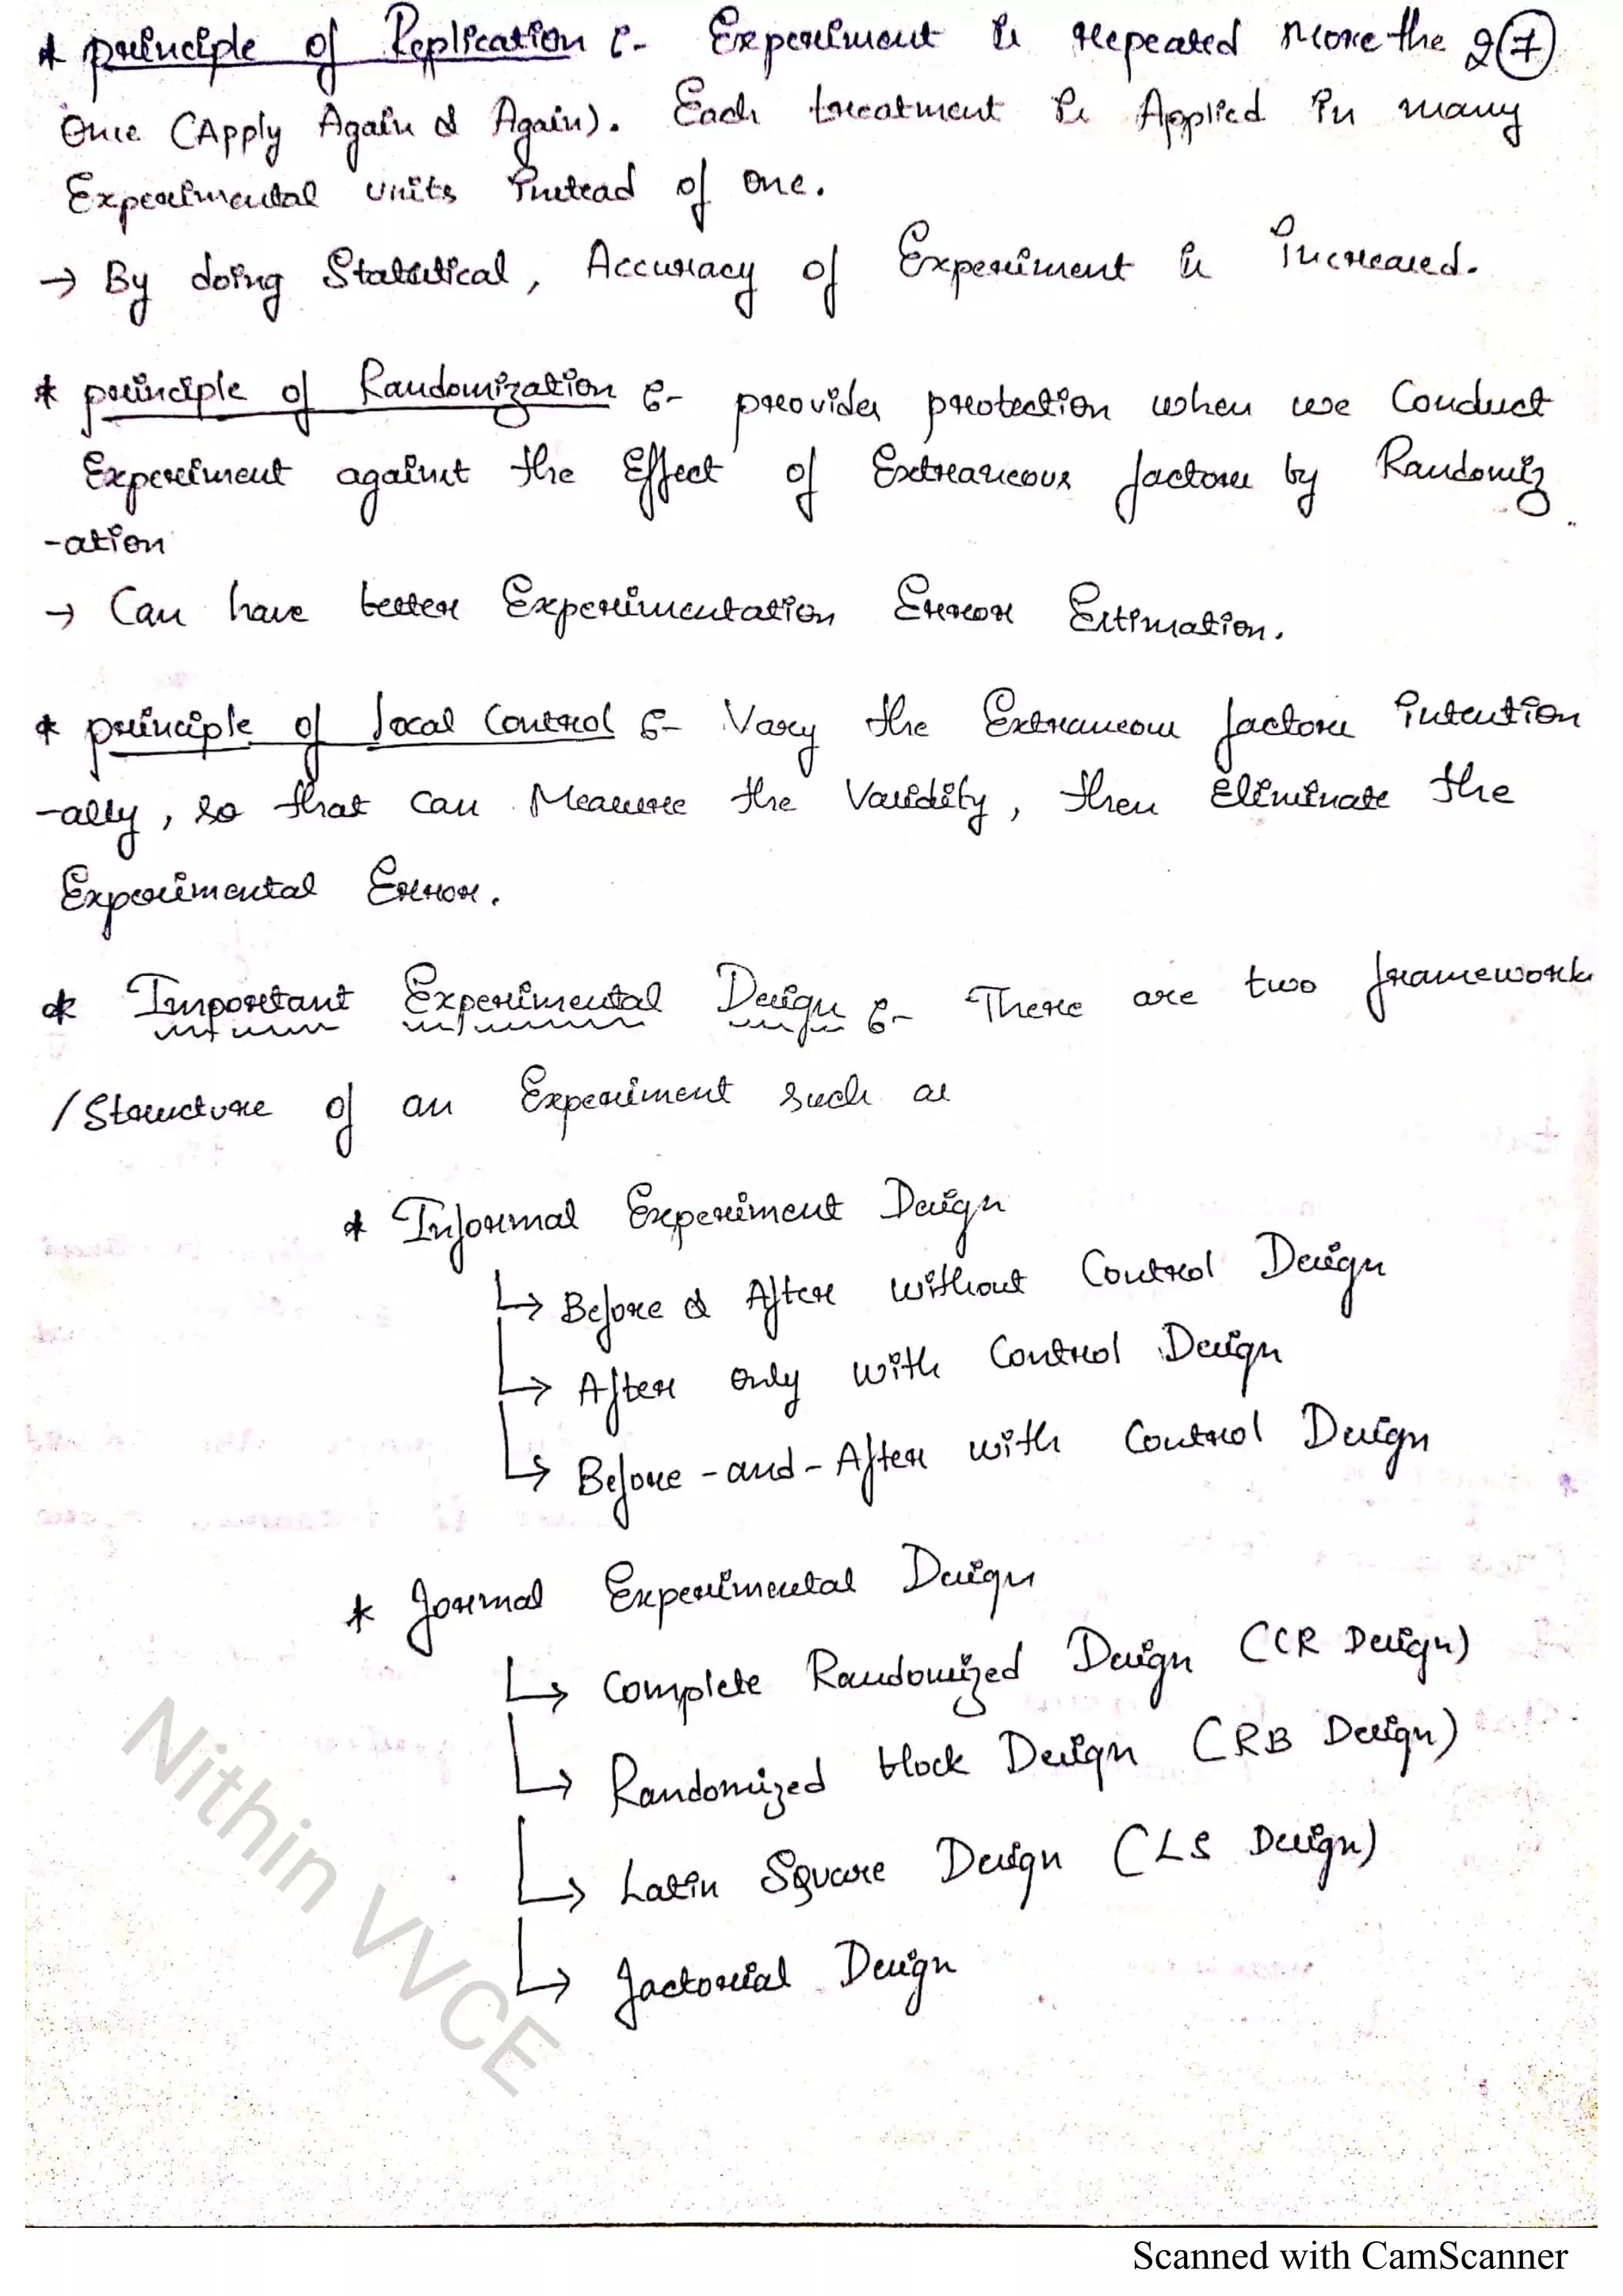 * principle of Replication :- Experiment is repeated more the 2 (7)
Once (Apply Again & Again). Each treatment is Applied in many
Experimental units instead of one.
→ By doing Statistical, Accuracy of Experiment is Increased.
* principle of Randomization :- provides protection when we Conduct
Experiment against the Effect of Extreaneous factors by Randomiz
-ation
→ Can have better Experimentation Error Estimation.
* principle of local Control :- Vary the Extraneous factors intention
-ally, so that can Measure the Validity, then Eliminate the
Experimental Error.
* Important Experimental Design :- There are two frameworks
/Structure of an Experiment such as
* Informal Experiment Design
↳ Before & After without Control Design
↳ After only with Control Design
↳ Before-and-After with Control Design
* formal Experimental Design
↳ Complete Randomized Design (CR Design)
↳ Randomized block Design (RB Design)
↳ Latin Square Design (LS Design)
↳ factorial Design
Nithin VVCE
Scanned with CamScanner